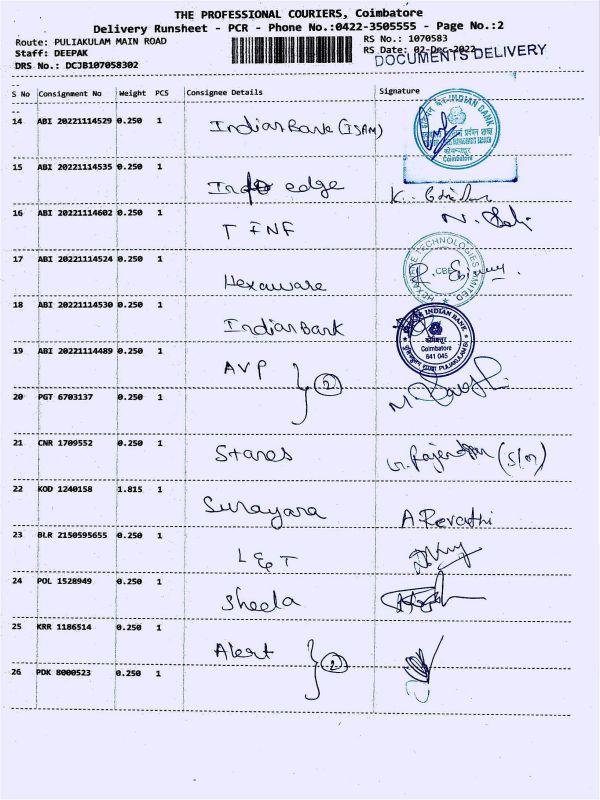 THE PROFESSIONAL COURIERS, Coimbatore
Delivery Runsheet - PCR - Phone No.:0422-3505555 - Page No.:2
Route: PULIAKULAM MAIN ROAD
RS No.: 1070583
Staff: DEEPAK
RS Date: 02-Dec-2022
DOCUMENTS DELIVERY
DRS No.: DCJB107058302
S No Consignment No Weight PCS Consignee Details Signature
14 ABI 20221114529 0.250 1 Indian Bank (ISAM)
INDIAN BANK
Coimbatore
15 ABI 20221114535 0.250 1 Info edge
16 ABI 20221114602 0.250 1 T INF
17 ABI 20221114524 0.250 1 Hexaware
HEXAWARE TECHNOLOGIES LIMITED
CBE
18 ABI 20221114530 0.250 1 Indian Bank
INDIAN BANK
Coimbatore
641 045
PULIAKULAM BR
19 ABI 20221114489 0.250 1 AVP
2
20 PGT 6703137 0.250 1
21 CNR 1709552 0.250 1 Stanes
22 KOD 1240158 1.815 1 Surayara A Revathi
23 BLR 2150595655 0.250 1 L & T
24 POL 1528949 0.250 1 Sheela
25 KRR 1186514 0.250 1 Alert
2
26 PDK 8000523 0.250 1